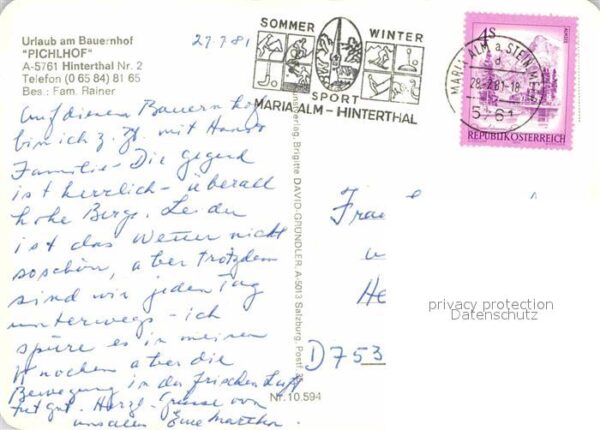 Urlaub am Bauernhof
"PICHLHOF"
A-5761 Hinterthal Nr. 2
Telefon (0 65 84) 81 65
Bes.: Fam. Rainer
27.7.81
SOMMER WINTER
SPORT
MARIA ALM - HINTERTHAL
4S
ALMSEE
REPUBLIK ÖSTERREICH
MARIA ALM a. STEIN. MEER
28.-7.81-18
5761
Auf diesem Bauernhof
bin ich z. Zt. mit
Familie - Die Gegend
ist herrlich - überall
hohe Berge. Leider
ist das Wetter nicht
so schön, aber trotzdem
sind wir jeden Tag
unterwegs - ich
spüre es in meinen
Knochen aber die
Bewegung in der frischen Luft
tut gut. Herzl. Grüsse von
uns allen Eure Martha
Kunstverlag, Brigitte DAVID-GRÜNDLER, A-5013 Salzburg, Postf.
Nr. 10.594
Frau
D 753
privacy protection
Datenschutz